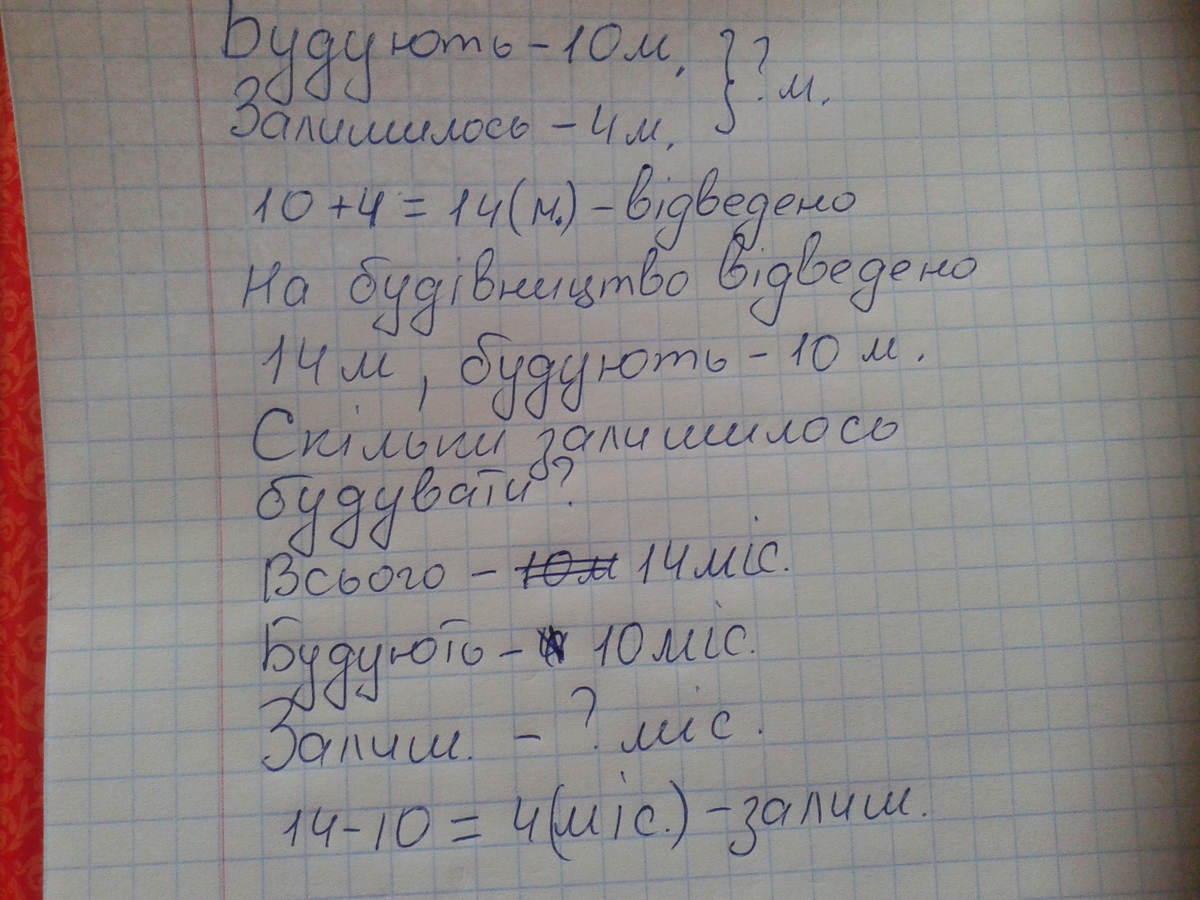 Будують - 10м. } ? м.
Залишилось - 4м.
10 + 4 = 14 (м.) - відведено
На будівництво відведено
14 м, будують - 10 м.
Скільки залишилось
будувати?
Всього - 10м 14 міс.
Будують - 10 міс.
Залиш. - ? міс.
14 - 10 = 4 (міс.) - залиш.